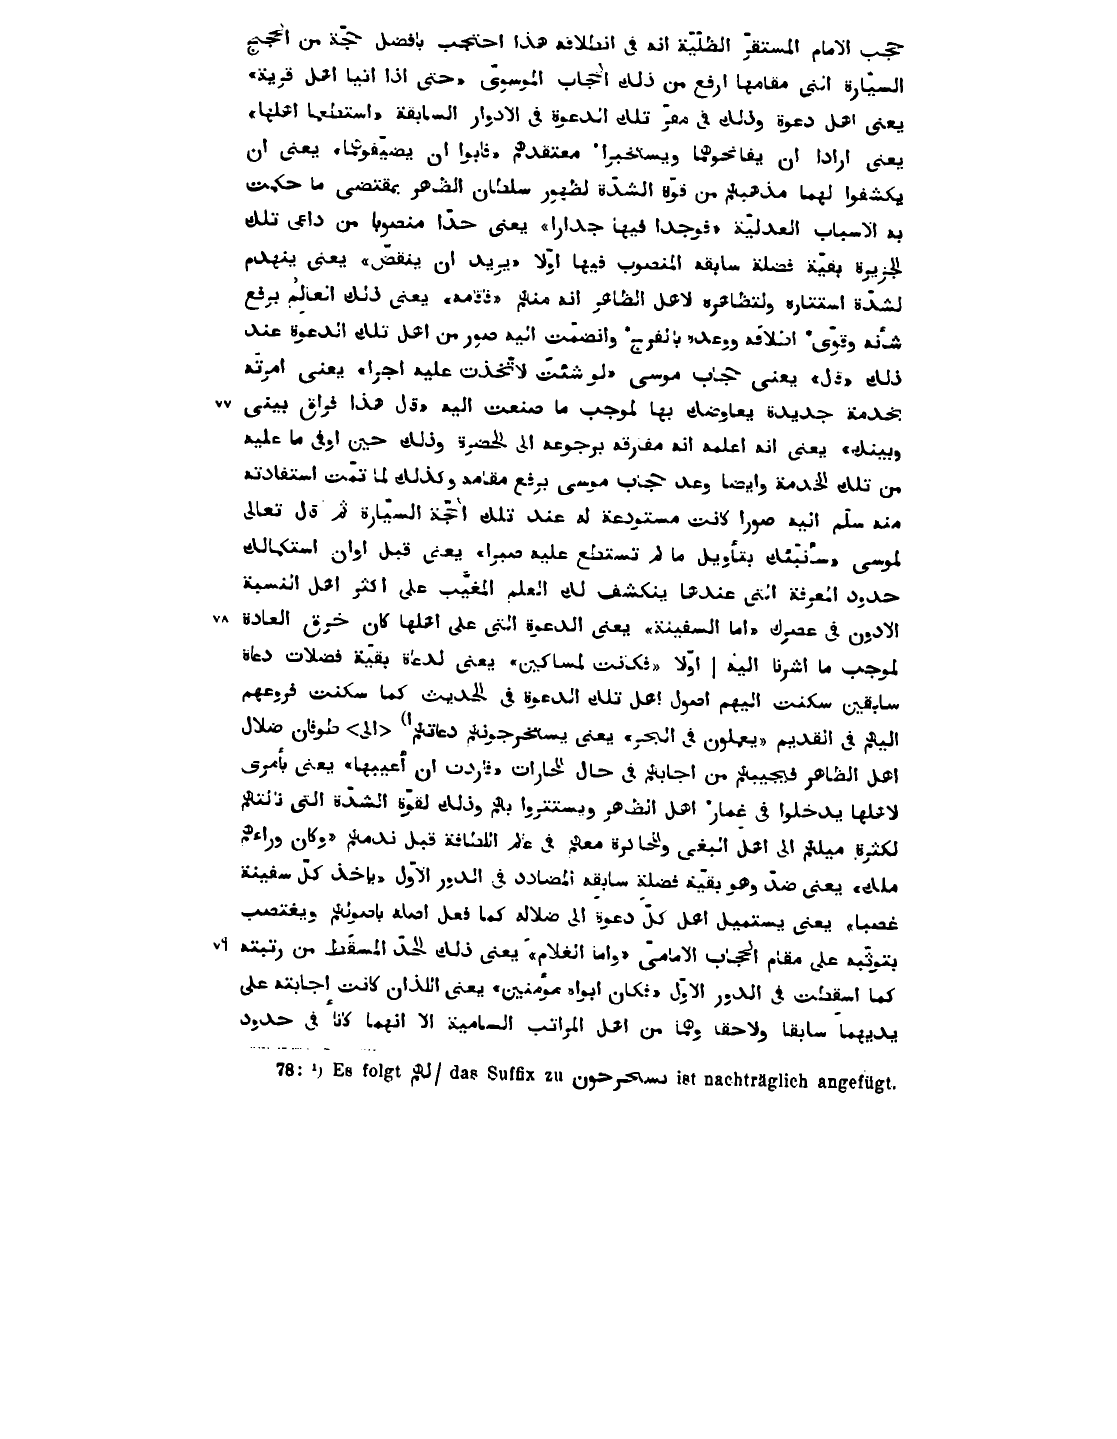 حجب الامام المستقرّ الظلّيّة انه فى انطلاقه هذا احتجب بافضل حجّة من الحجج
السيّارة التى مقامها ارفع من ذلك الحجاب الموسوىّ «حتى اذا اتيا اهل قرية»
يعنى اهل دعوة وذلك فى مقرّ تلك الدعوة فى الادوار السابقة «استطعما اهلها»
يعنى ارادا ان يفاتحوهما ويستخبرا معتقدهم «فابوا ان يضيّفوهما» يعنى ان
يكشفوا لهما مذهبهم من قوّة الشدّة لظهور سلطان الظاهر بمقتضى ما حكمت
به الاسباب العدليّة «فوجدا فيها جدارا» يعنى حدّا منصوبا من داعى تلك
الجزيرة بقيّة فضلة سابقه المنصوب فيها اوّلا «يريد ان ينقضّ» يعنى ينهدم
لشدّة استتاره ولتظاهره لاهل الظاهر انه منهم «فاقامه» يعنى ذلك العالِمُ برفع
شأنه وقوّى اطلاقه ووعده بالفرج وانضمّت اليه صور من اهل تلك الدعوة عند
ذلك «قال» يعنى حجاب موسى «لو شئتَ لاتّخذت عليه اجرا» يعنى امرتَه
بخدمة جديدة يعاوضك بها لموجب ما صنعت اليه «قال هذا فراق بينى ٧٧
وبينك» يعنى انه اعلمه انه مفارقه برجوعه الى الحضرة وذلك حين اوفى ما عليه
من تلك الخدمة وايضا وعد حجاب موسى برفع مقامه وكذلك لما تمّت استفادته
منه سلّم اليه صورا كانت مستودعة له عند تلك الحجّة السيّارة ثم قال تعالى
لموسى «سأنبّئك بتأويل ما لم تستطع عليه صبرا» يعنى قبل اوان استكمالك
حدود المعرفة التى عندها ينكشف لك العلم المغيَّب على اكثر اهل النسبة
الادون فى عصرك «اما السفينة» يعنى الدعوة التى على اهلها كان خرق العادة ٧٨
لموجب ما اشرنا اليه | اوّلا «فكانت لمساكين» يعنى لدعاة بقيّة فضلات دعاة
سابقين سكنت اليهم اصول اهل تلك الدعوة فى الحديث كما سكنت فروعهم
اليهم فى القديم «يعملون فى البحر» يعنى يستخرجونهم دعاتهم¹⁾ <الى> طوفان ضلال
اهل الظاهر فيجيبهم من اجابهم فى حال المحارات «فاردت ان أعيبها» يعنى بأمرى
لاهلها يدخلوا فى غمار اهل الظاهر ويستتروا بهم وذلك لقوّة الشدّة التى نالتهم
لكثرة ميلهم الى اهل البغى والمحاورة معهم فى عالم اللطافة قبل ندمهم «وكان وراءهم
ملك» يعنى ضدّ وهو بقيّة فضلة سابقه المضادد فى الدور الاوّل «ياخذ كلّ سفينة
غصبا» يعنى يستميل اهل كلّ دعوة الى ضلاله كما فعل اصله باصولهم ويغتصب
بتوثّبه على مقام الحجاب الامامىّ «واما الغلام» يعنى ذلك الحدّ المسقَط من رتبته ٧٩
كما اسقطت فى الدور الاوّل «فكان ابواه مؤمنين» يعنى اللذان كانت اجابته على
يديهما سابقا ولاحقا وهما من اهل المراتب السامية الا انهما كانا فى حدود
78: ¹) Es folgt لهم/ das Suffix zu يستخرجون ist nachträglich angefügt.